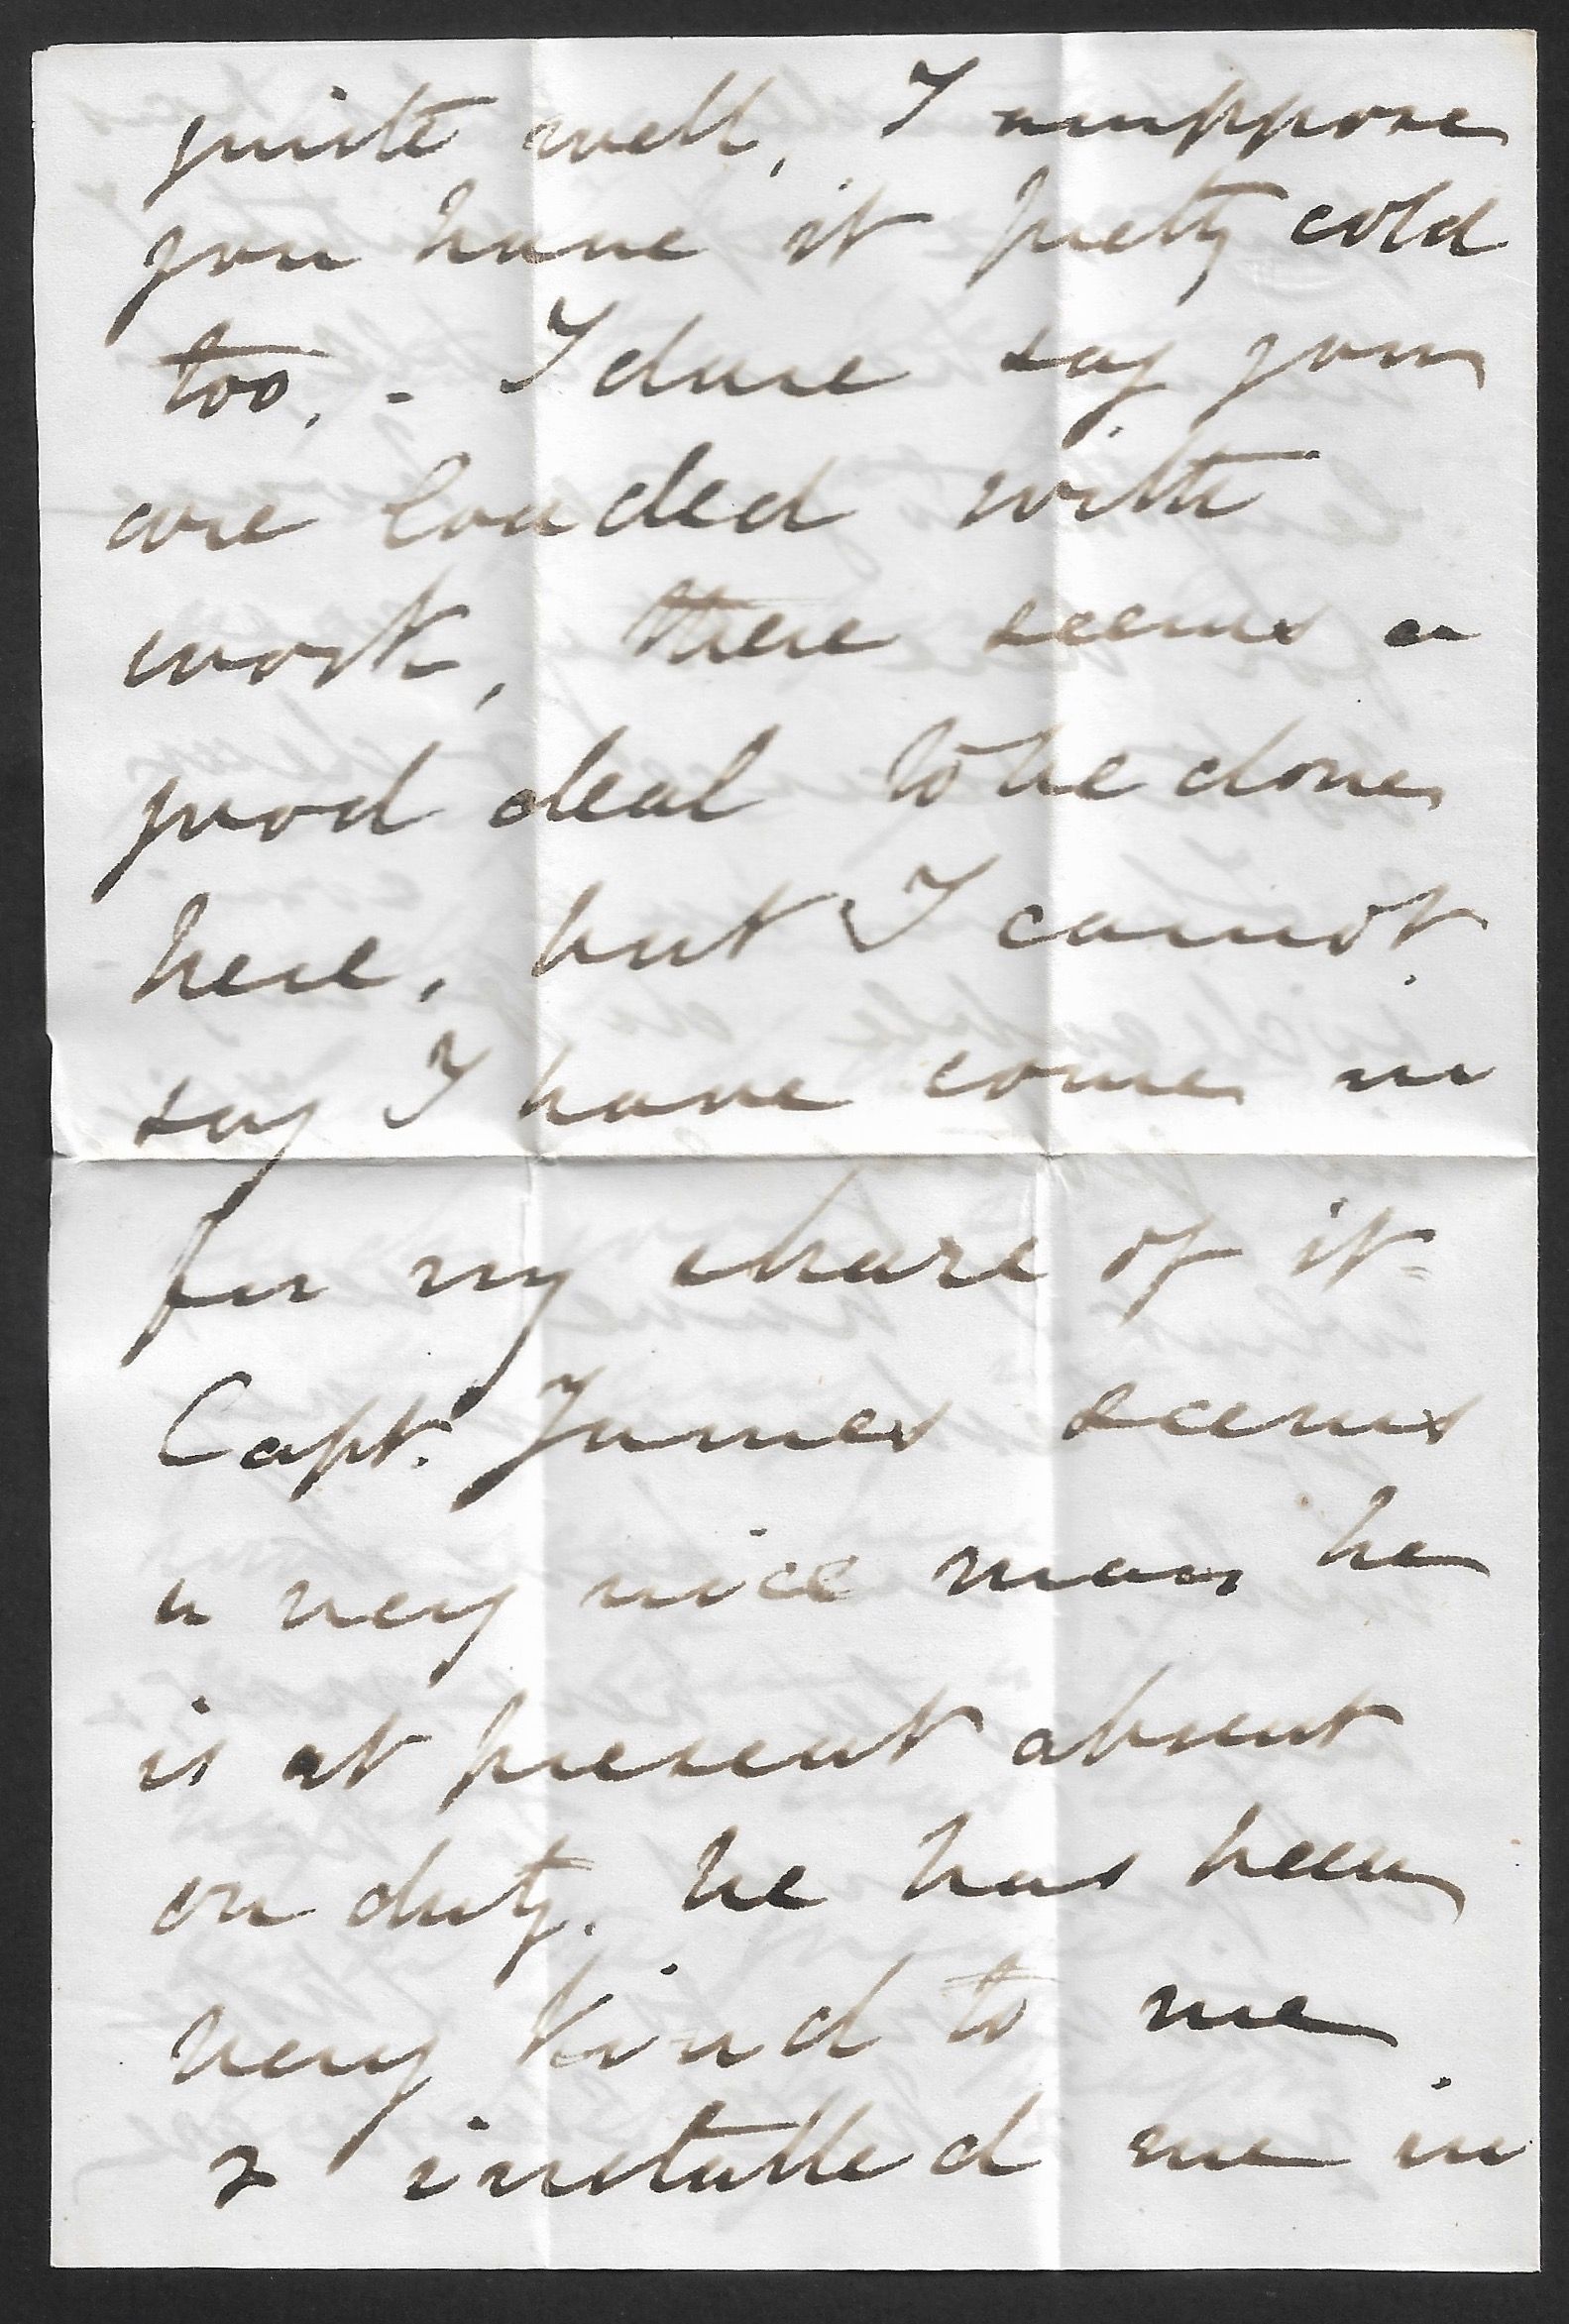 quite well, I suppose
you have it pretty cold
too, - I dare say you
are loaded with
work, there seems a
good deal to be done
here, but I cannot
say I have come in
for my share of it -
Capt. James seems
a very nice man he
is at present absent
on duty. he has been
very kind to me
& installed me in